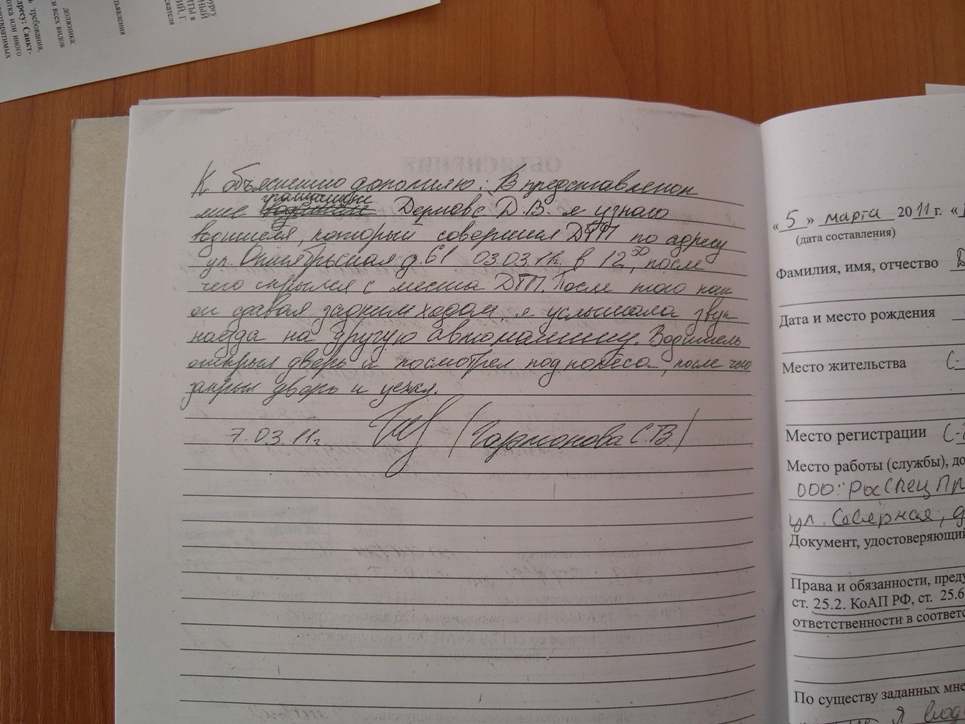 должнике
и всех видов
требования,
адресу: Санкт-
отка или иного
К объяснению дополняю: В представленом
гражданине
мне водителе Дернове Д.В. я узнала
водителя, который совершил ДТП по адресу
ул. Октябрьская д. 61 03.03.11г. в 12 50, после
чего скрылся с места ДТП. После того как
он сдавал задним ходом, я услышала звук
наезда на другую автомашину. Водитель
открыл дверь и посмотрел под колёса, после чего
закрыл дверь и уехал.
7.03.11г. (Гармонова С.В.)
« 5 » марта 2011 г. «
(дата составления)
Фамилия, имя, отчество
Дата и место рождения
Место жительства С-
Место регистрации С-
Место работы (службы), до
ООО: РосСпецПр
ул. Северная, д
Документ, удостоверяющи
Права и обязанности, преду
ст. 25.2. КоАП РФ, ст. 25.6
ответственности в соответс
По существу заданных мне
Я